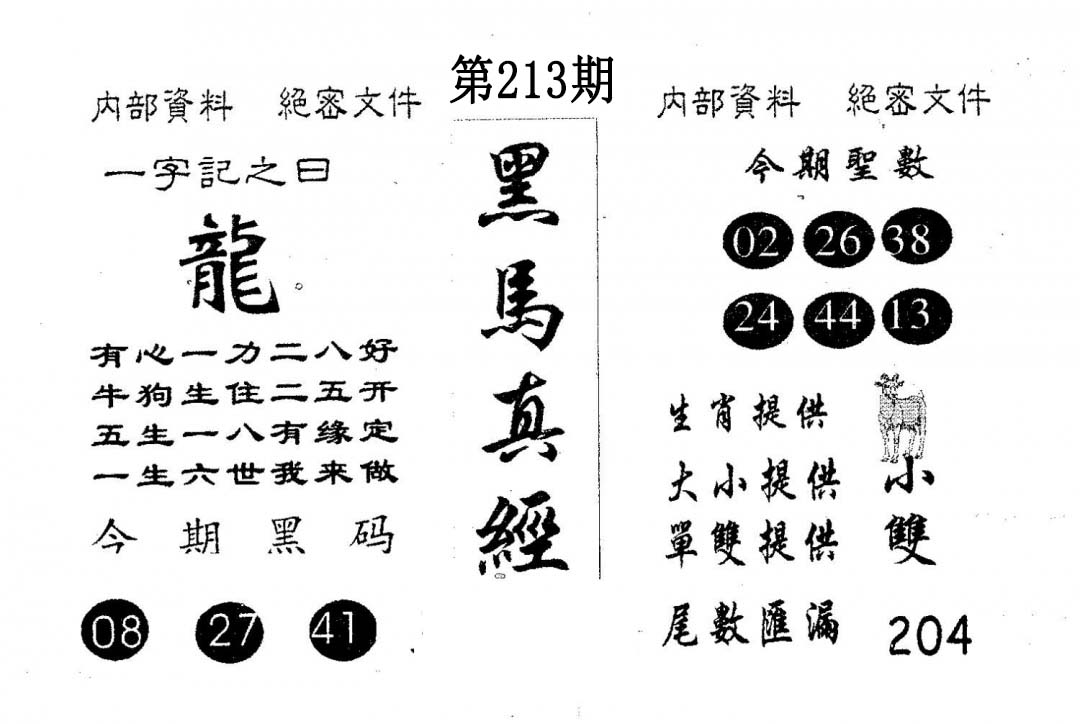 第213期
內部資料 絕密文件
一字記之曰
龍
有心一力二八好
牛狗生住二五开
五生一八有缘定
一生六世我来做
今期黑码
08 27 41
黑馬真經
內部資料 絕密文件
今期聖數
02 26 38
24 44 13
生肖提供
大小提供 小
單雙提供 雙
尾數匯漏 204